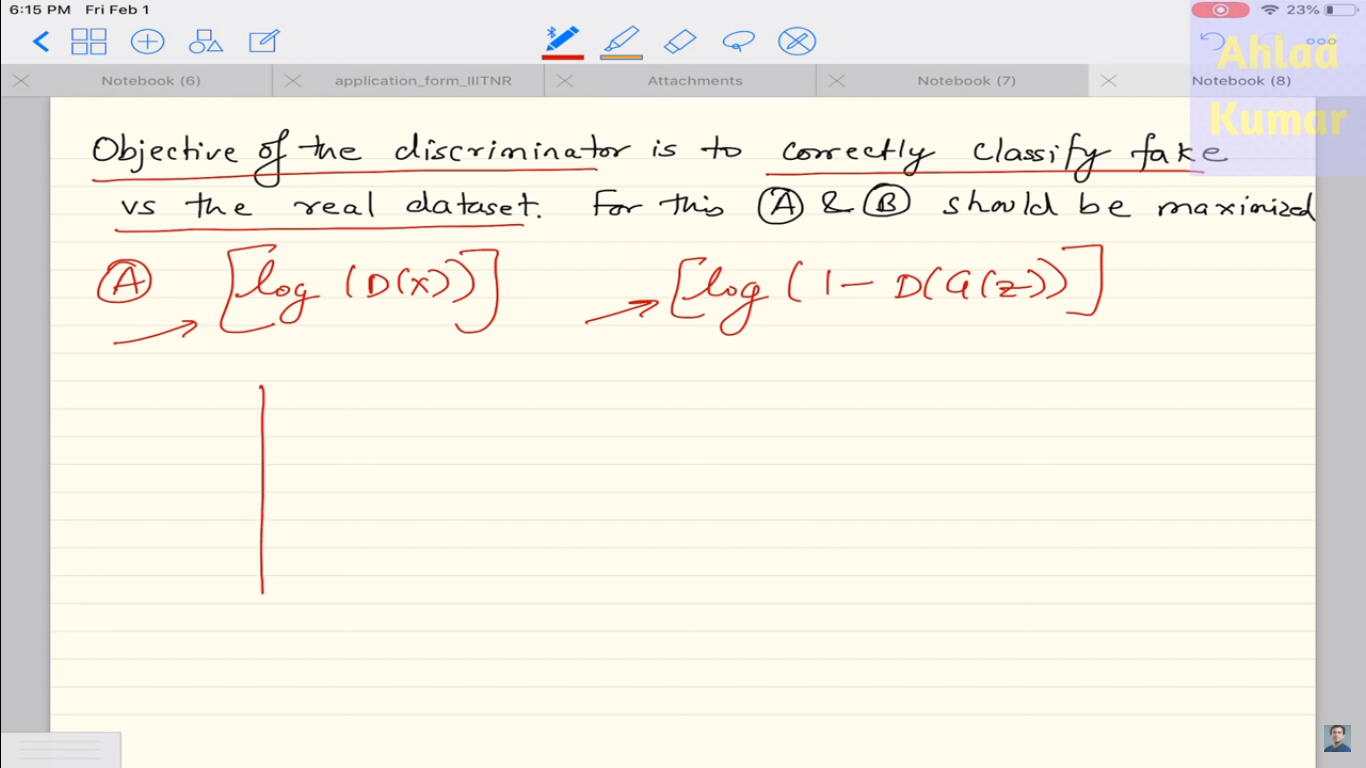 6:15 PM Fri Feb 1
23%
Notebook (6)
application_form_IIITNR
Attachments
Notebook (7)
Notebook (8)
Ahlad
Kumar
Objective of the discriminator is to correctly classify fake
vs the real dataset. For this (A) & (B) should be maximized
(A) [log (D(x))] [log (1 - D(G(z))]